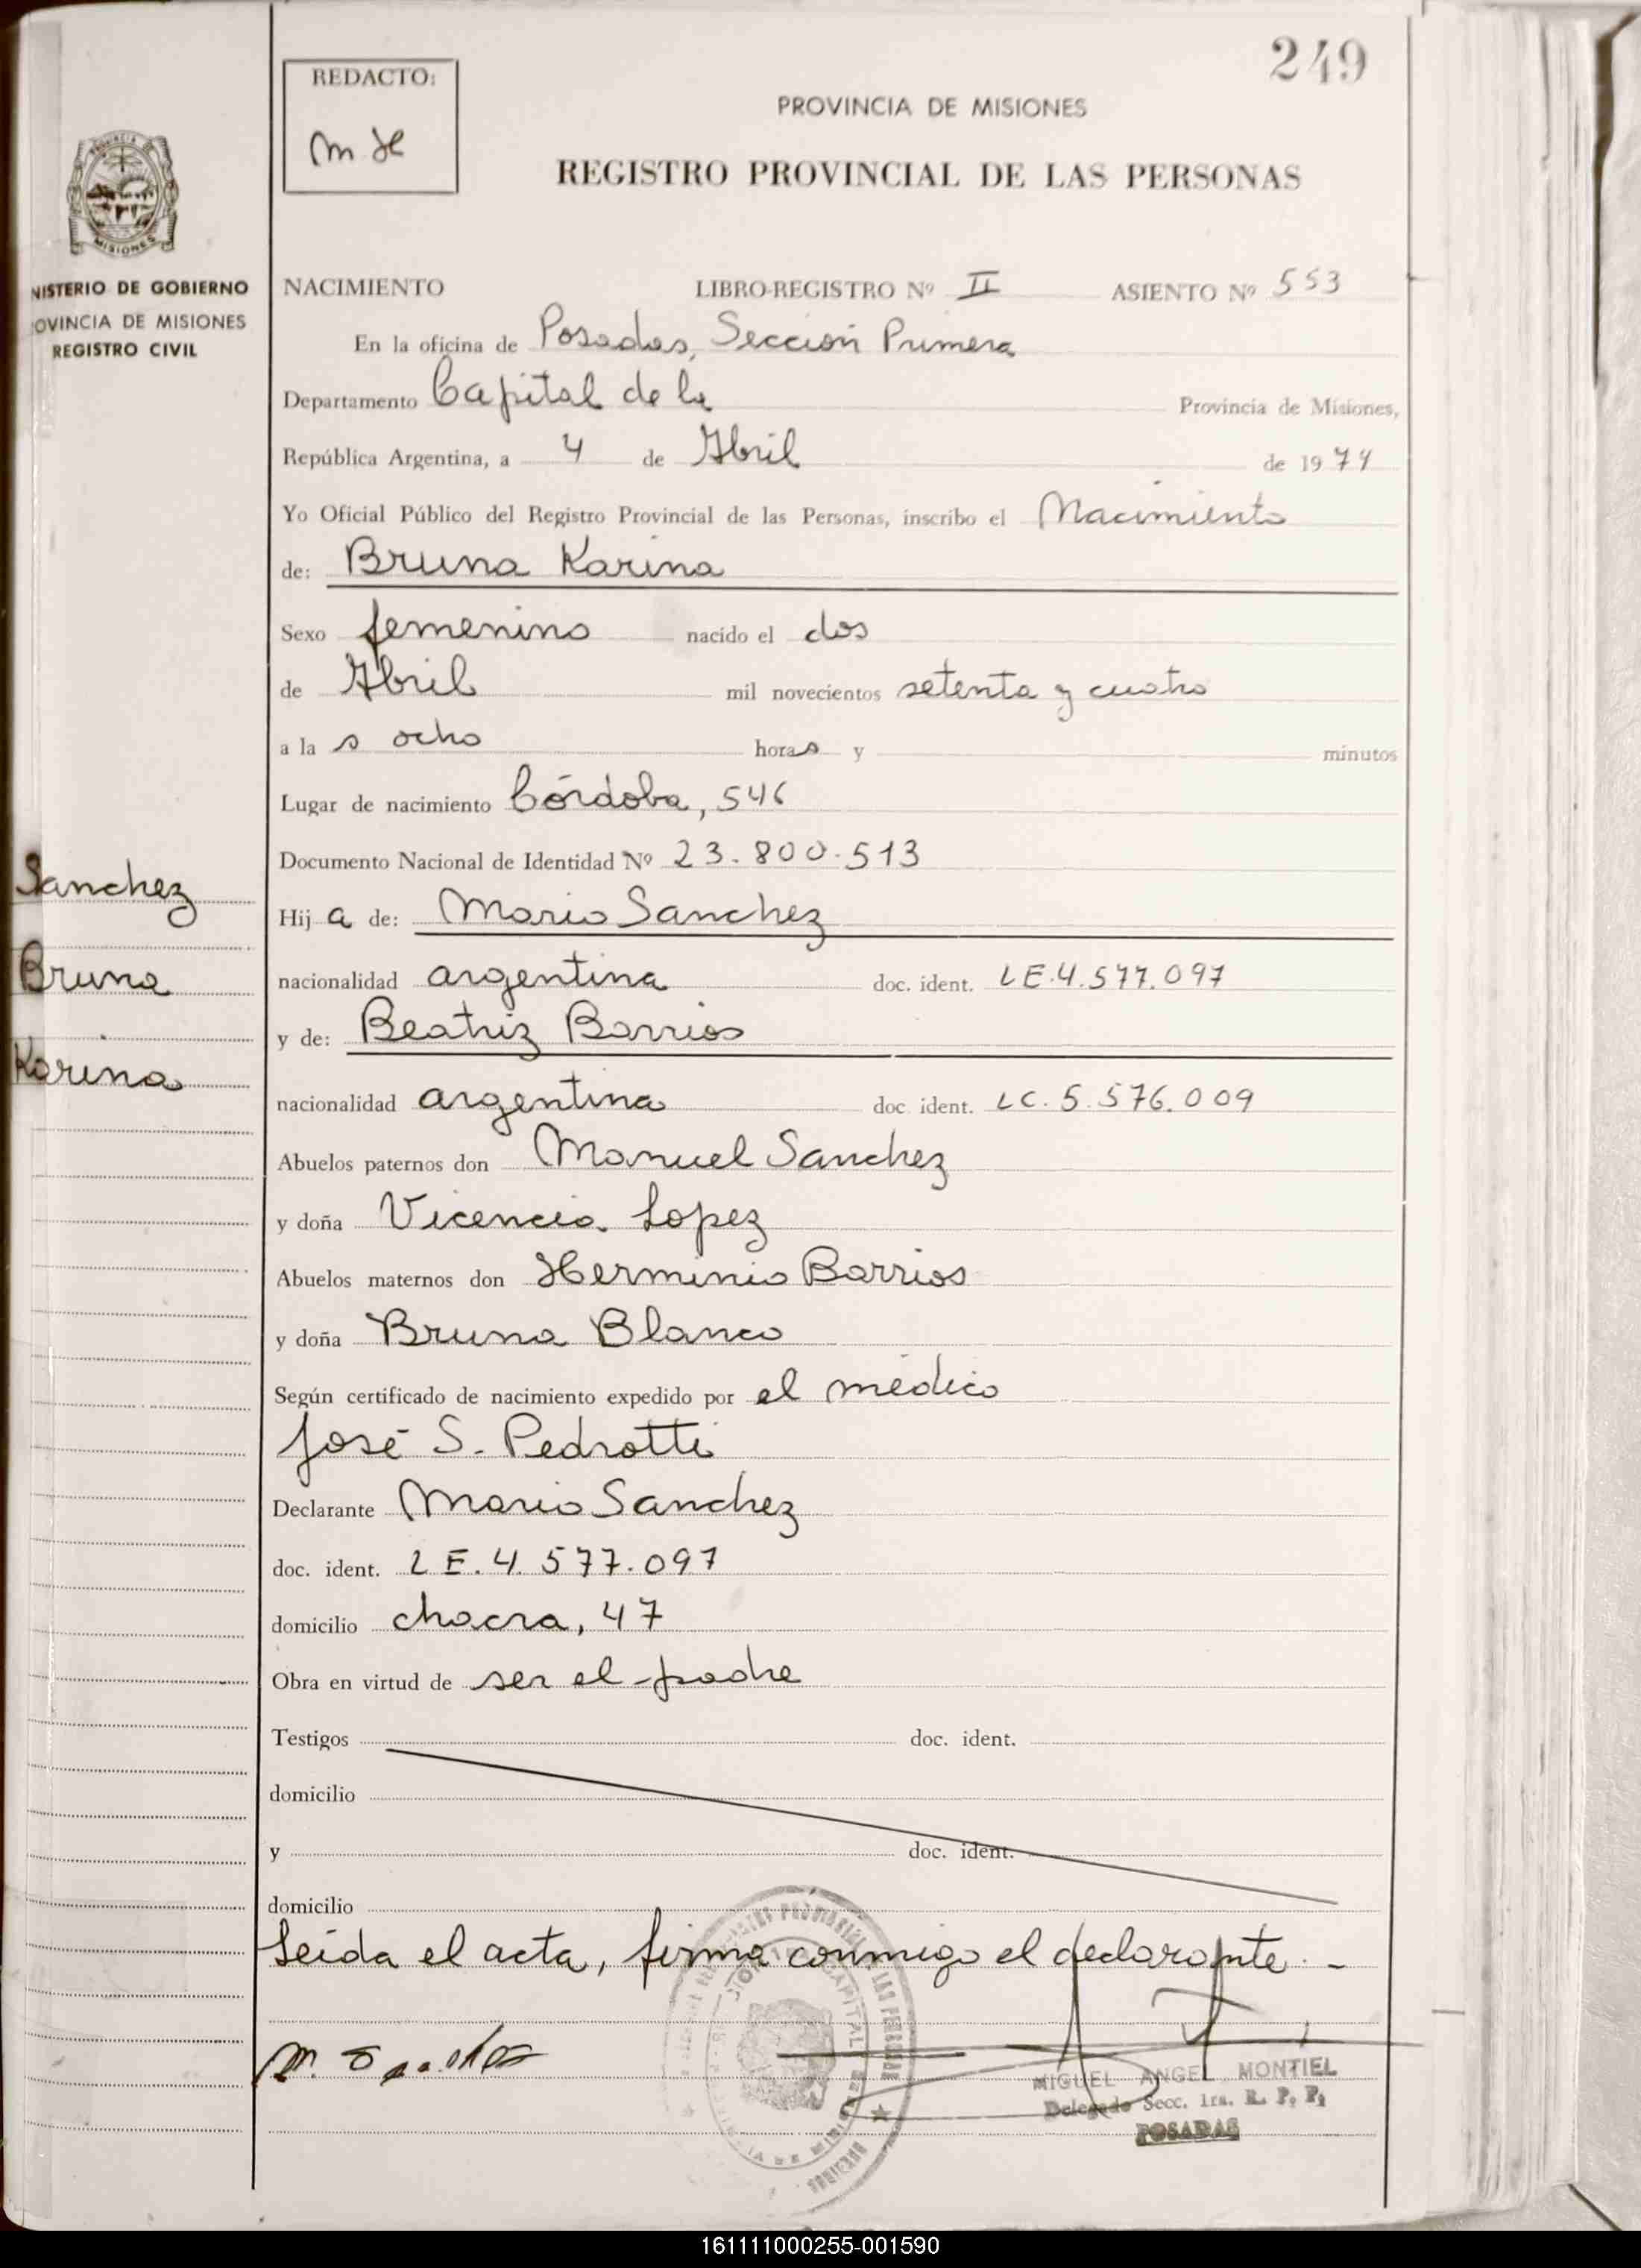 249
REDACTO:
PROVINCIA DE MISIONES
REGISTRO PROVINCIAL DE LAS PERSONAS
NISTERIO DE GOBIERNO
OVINCIA DE MISIONES
REGISTRO CIVIL
NACIMIENTO LIBRO-REGISTRO Nº II ASIENTO Nº 553
En la oficina de Posadas, Sección Primera
Departamento Capital de la Provincia de Misiones,
República Argentina, a 4 de Abril de 1974
Yo Oficial Público del Registro Provincial de las Personas, inscribo el Nacimiento
de: Bruna Karina
Sexo femenino nacido el dos
de Abril mil novecientos setenta y cuatro
a la s ocho horas y minutos
Lugar de nacimiento Córdoba, 546
Documento Nacional de Identidad Nº 23.800.513
Sanchez
Bruna
Karina
Hij a de: Mario Sanchez
nacionalidad argentina doc. ident. LE.4.577.097
y de: Beatriz Barrios
nacionalidad argentina doc. ident. LC.5.576.009
Abuelos paternos don Manuel Sanchez
y doña Vicencia Lopez
Abuelos maternos don Herminio Barrios
y doña Bruna Blanco
Según certificado de nacimiento expedido por el médico
José S. Pedrotti
Declarante Mario Sanchez
doc. ident. LE.4.577.097
domicilio chacra, 47
Obra en virtud de ser el padre
Testigos doc. ident.
domicilio
y doc. ident.
domicilio
Leída el acta, firma conmigo el declarante.-
MIGUEL ANGEL MONTIEL
Delegado Secc. 1ra. R. P. P.
POSADAS
161111000255-001590